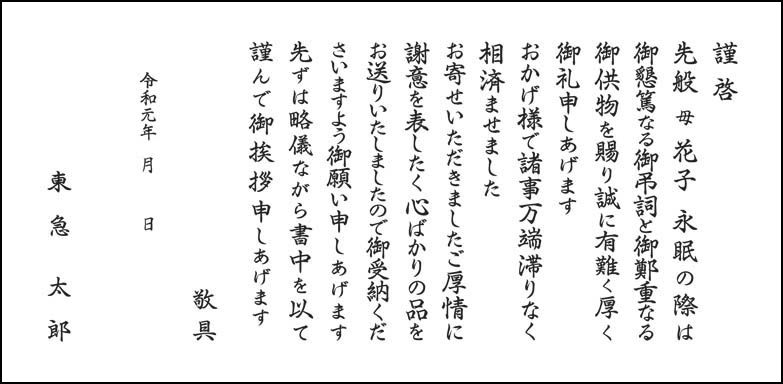 謹啓
先般 母 花子 永眠の際は
御懇篤なる御弔詞と御鄭重なる
御供物を賜り誠に有難く厚く
御礼申しあげます
おかげ様で諸事万端滞りなく
相済ませました
お寄せいただきましたご厚情に
謝意を表したく心ばかりの品を
お送りいたしましたので御受納くだ
さいますよう御願い申しあげます
先ずは略儀ながら書中を以て
謹んで御挨拶申しあげます
敬具
令和元年 月 日
東急 太郎